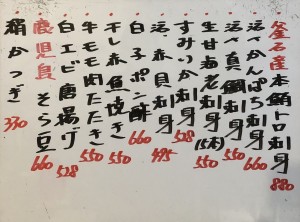 釜石産本鮪トロ刺身 880
活〆かんぱち刺身 660
活〆真鯛刺身 550
生甘海老刺身(5本) 550
すみいか刺身 528
活〆赤貝刺身 495
白子ポン酢 660
干し赤魚焼き 550
牛モモ肉たたき 550
白エビ唐揚げ 528
鹿児島そら豆 660
絹かつぎ 330